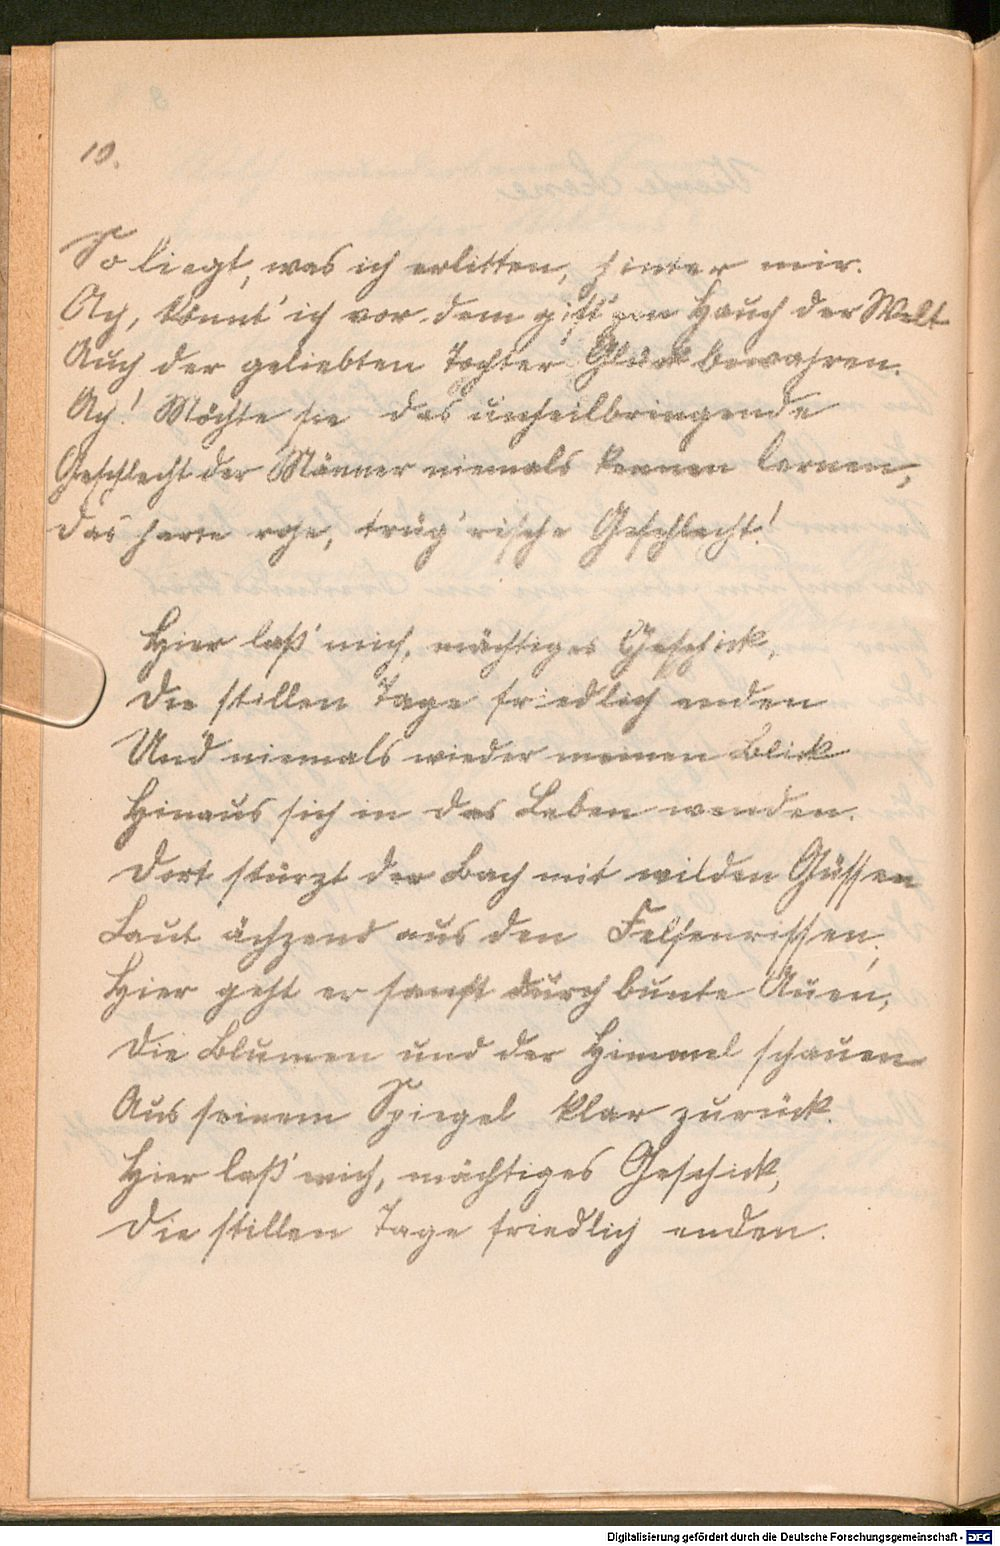 10.
So liegt, was ich erlitten, hinter mir.
Ach, könnt' ich vor dem gift'gen Hauch der Welt
Auch der geliebten Tochter Glück bewahren.
Ach! Möchte sie das unheilbringende
Geschlecht der Männer niemals kennen lernen,
Das harte rohe, trüg'rische Geschlecht!
Hier laß' mich, mächtiges Geschick,
Die stillen Tage friedlich enden
Und niemals wieder meinen Blick
Hinaus sich in das Leben wenden.
Dort stürzt der Bach mit wilden Güssen
Laut ächzend aus den Felsenrissen;
Hier geht er sanft durch bunte Auen,
Die Blumen und der Himmel schauen
Aus seinem Spiegel klar zurück.
Hier laß' mich, mächtiges Geschick,
Die stillen Tage friedlich enden.
Digitalisierung gefördert durch die Deutsche Forschungsgemeinschaft - DFG